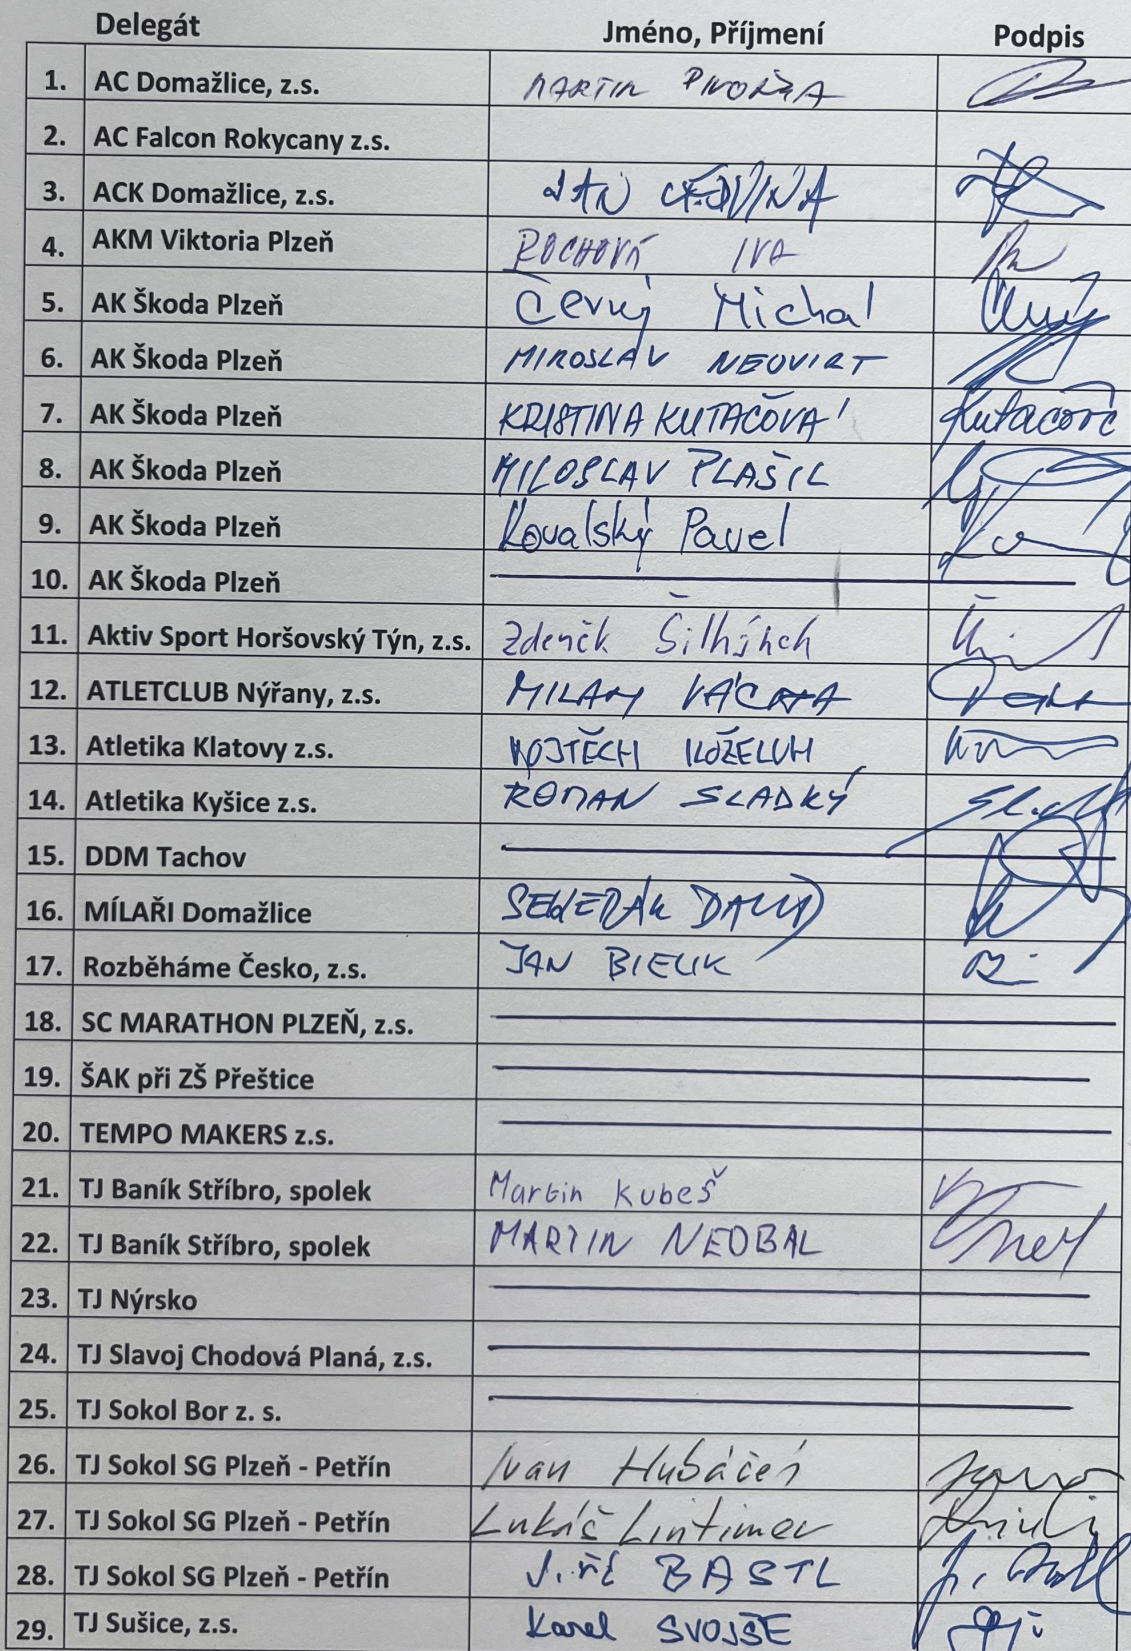 Delegát Jméno, Příjmení Podpis
1. AC Domažlice, z.s. MARTIN PIVOŇKA
2. AC Falcon Rokycany z.s.
3. ACK Domažlice, z.s. JAN
4. AKM Viktoria Plzeň ROCHOVÁ IVA
5. AK Škoda Plzeň Černý Michal
6. AK Škoda Plzeň MIROSLAV NEUVIRT
7. AK Škoda Plzeň KRISTINA KUTAČOVÁ
8. AK Škoda Plzeň MILOSLAV PLAŠIL
9. AK Škoda Plzeň Kovalský Pavel
10. AK Škoda Plzeň
11. Aktiv Sport Horšovský Týn, z.s. Zdeněk
12. ATLETCLUB Nýřany, z.s. MILAN VÁCHA
13. Atletika Klatovy z.s. VOJTĚCH KOŽELUH
14. Atletika Kyšice z.s. ROMAN SLADKÝ
15. DDM Tachov
16. MÍLAŘI Domažlice SEWERÁK DAVID
17. Rozběháme Česko, z.s. JAN BIELIK
18. SC MARATHON PLZEŇ, z.s.
19. ŠAK při ZŠ Přeštice
20. TEMPO MAKERS z.s.
21. TJ Baník Stříbro, spolek Martin Kubeš
22. TJ Baník Stříbro, spolek MARTIN NEOBAL
23. TJ Nýrsko
24. TJ Slavoj Chodová Planá, z.s.
25. TJ Sokol Bor z. s.
26. TJ Sokol SG Plzeň - Petřín Ivan Hubáček
27. TJ Sokol SG Plzeň - Petřín Lukáš Lintimer
28. TJ Sokol SG Plzeň - Petřín Jiří BASTL
29. TJ Sušice, z.s. Karel SVOJŠE